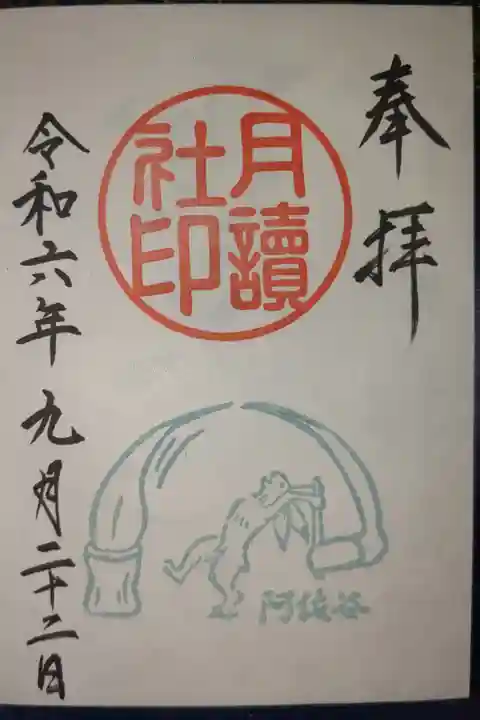 奉拝
月讀
社印
令和六年九月二十二日